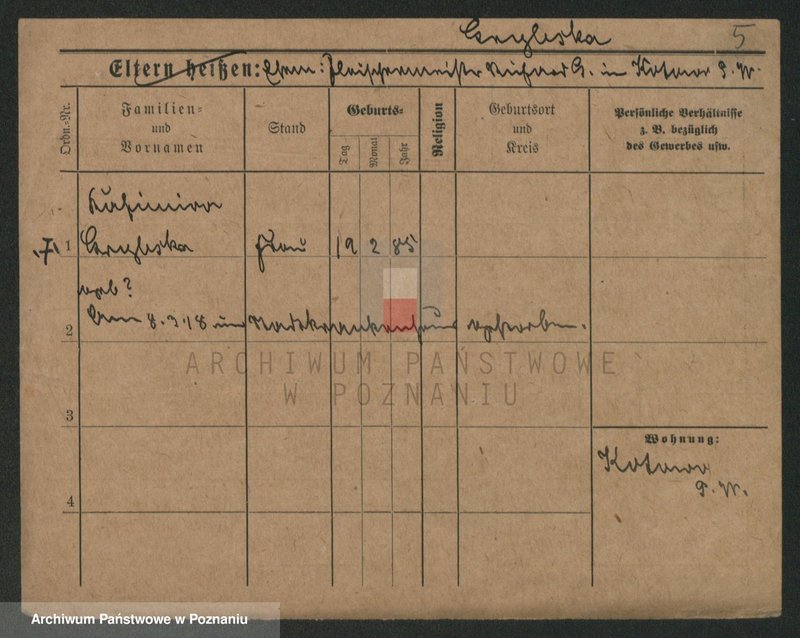 5
Eltern heißen: Ehem: Fleischermeister Richard G. in Kotowo P. W.
Ordn.-Nr.
Familien- und Vornamen
Stand
Geburts-
Tag
Monat
Jahr
Religion
Geburtsort und Kreis
Persönliche Verhältnisse z. B. bezüglich des Gewerbes usw.
Kasimira
1
Frau 19 2 85
geb?
2
Am 8.3.18 im Stadtkrankenhaus gestorben.
3
4
Wohnung:
Kotowo
P. W.
ARCHIWUM PAŃSTWOWE
W POZNANIU
Archiwum Państwowe w Poznaniu